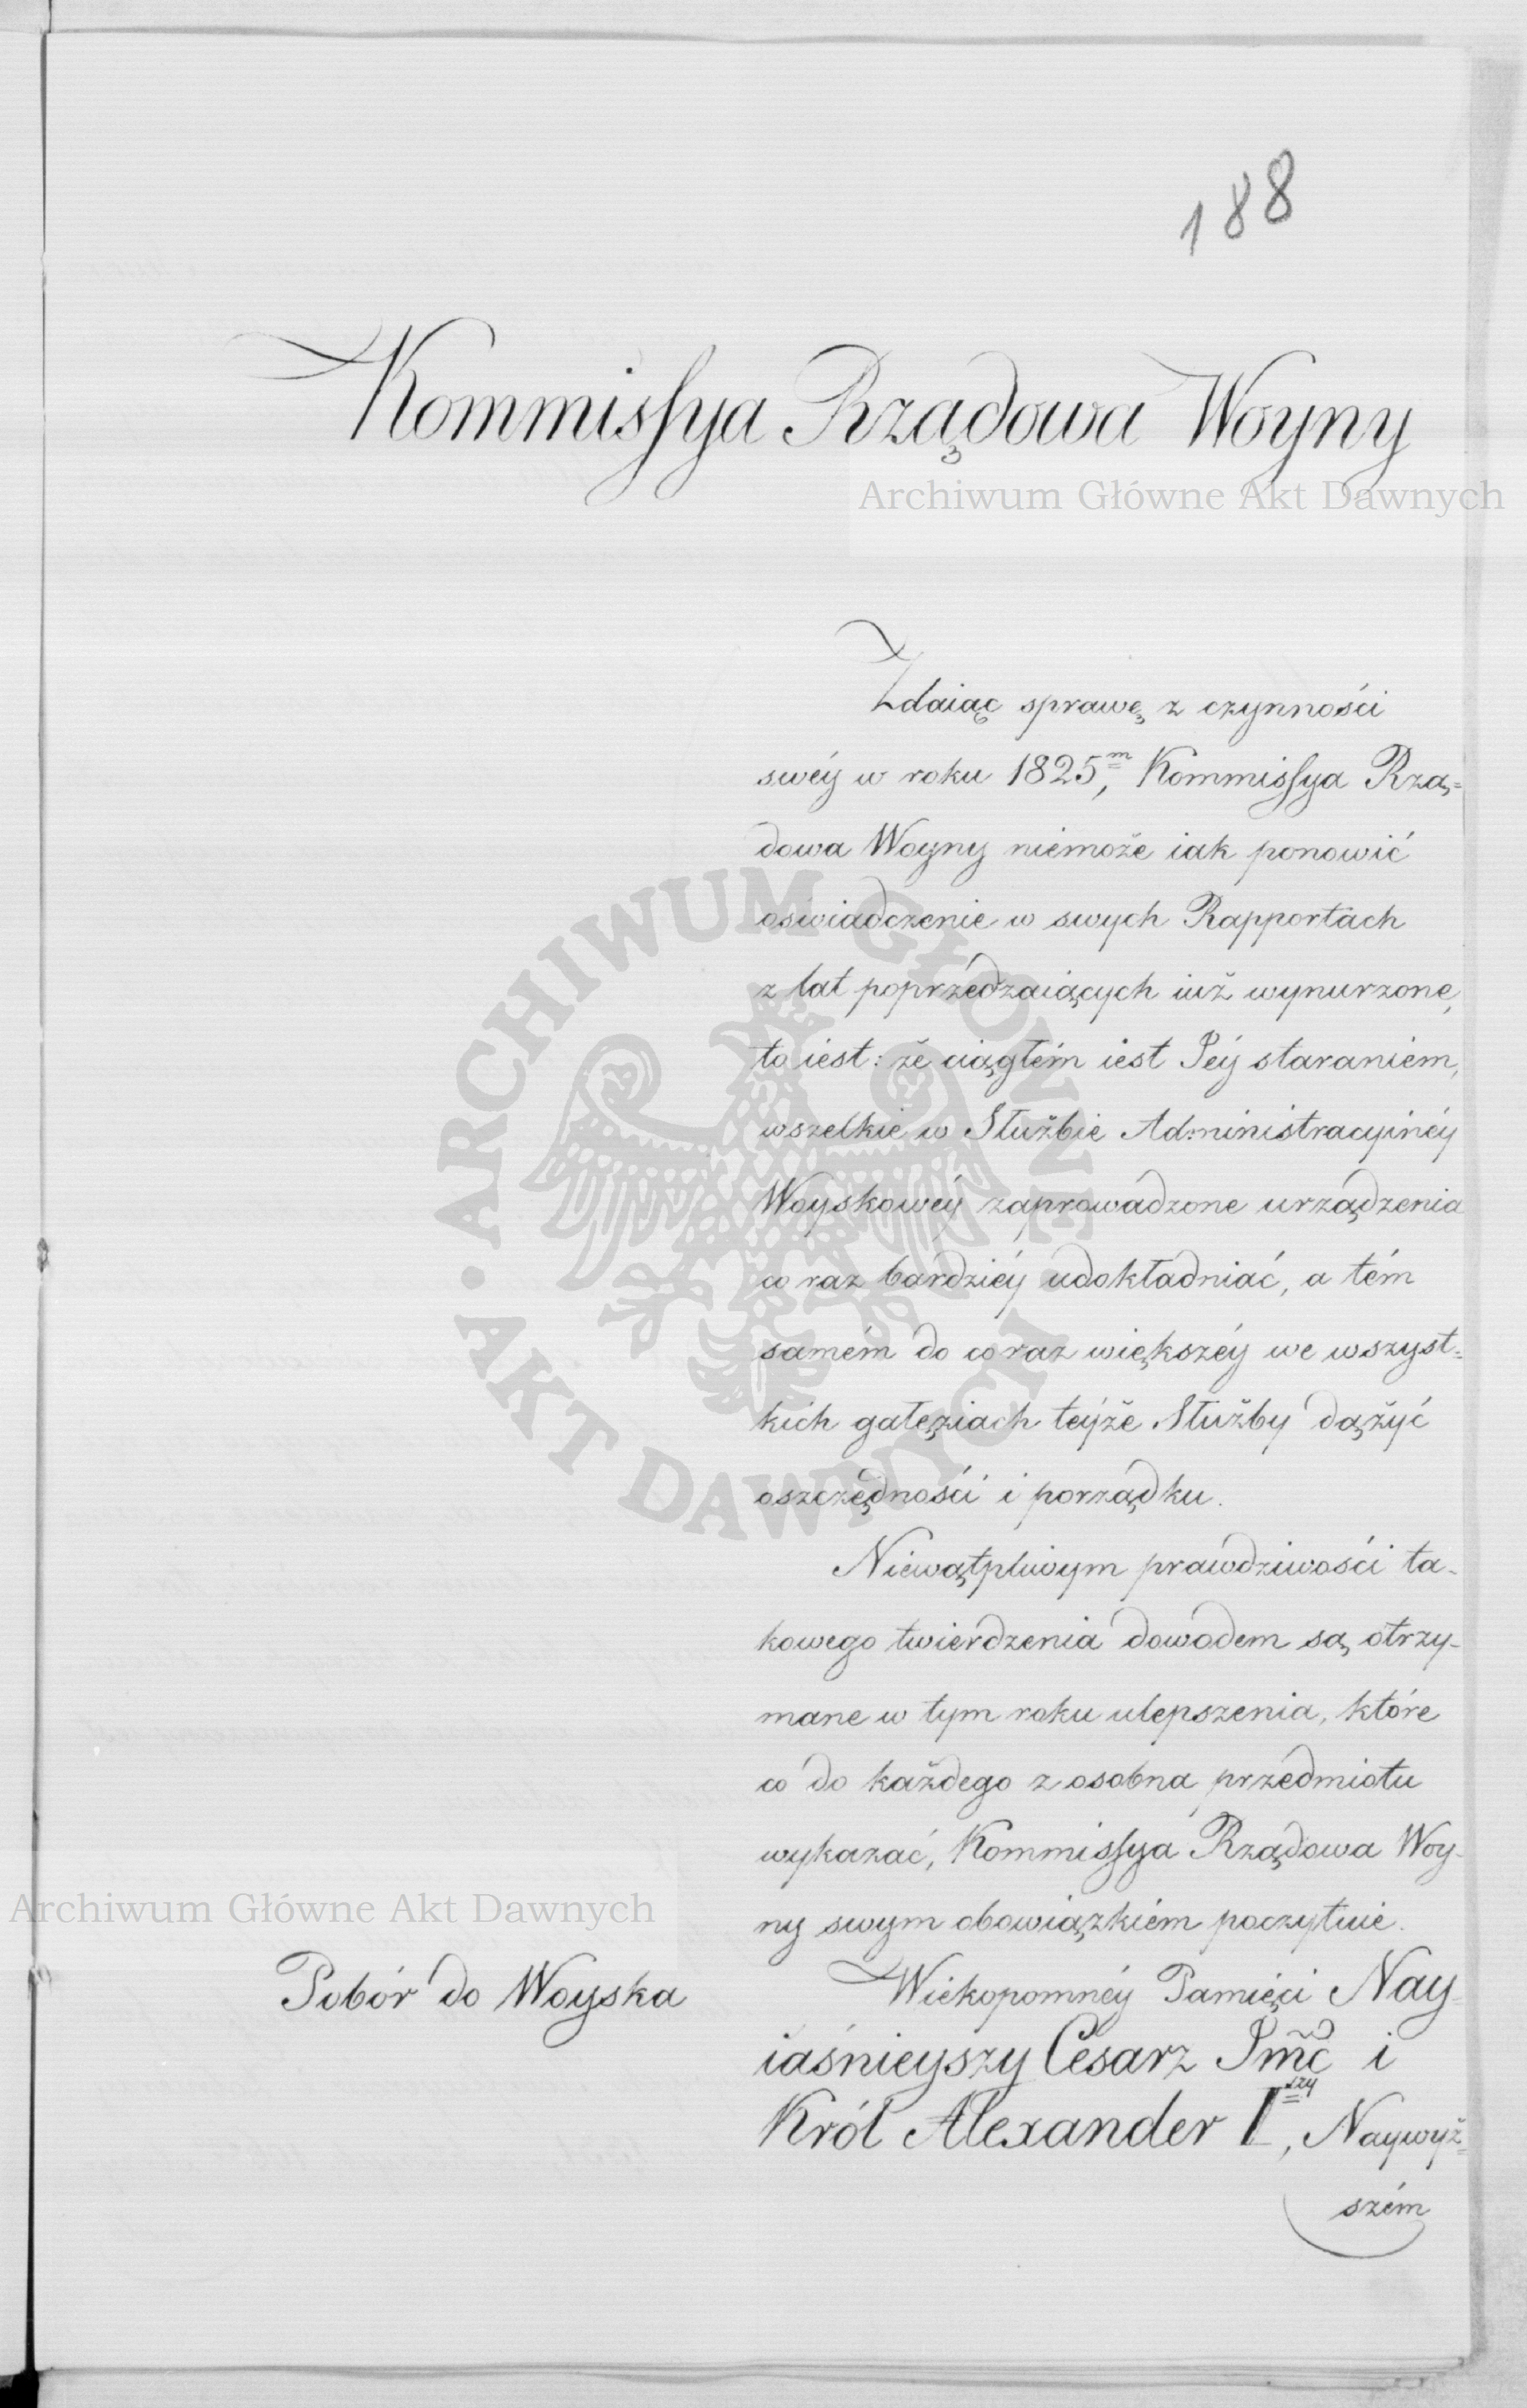 188
Kommissya Rządowa Woyny
Archiwum Główne Akt Dawnych
Zdaiąc sprawę z czynności
swéy w roku 1825m, Kommissya Rzą=
dowa Woyny niemoże iak ponowić
oświadczenie w swych Rapportach
z lat poprzedzaiących iuż wynurzone,
to iest: że ciągłém iest Jéy staraniem,
wszelkie w Służbie Administracyinéy
Woyskowéy zaprowadzone urządzenia
co raz bardziéy udokładniać, a tém
samém do coraz większéy we wszyst=
kich gałęziach téyże Służby dążyć
oszczędności i porządku.
Niewątpliwym prawdziwości ta-
kowego twierdzenia dowodem są otrzy-
mane w tym roku ulepszenia, które
co do każdego z osobna przedmiotu
wykazać, Kommissya Rządowa Woy-
ny swym obowiązkiem poczytuie.
Archiwum Główne Akt Dawnych
Pobór do Woyska
Wiekopomnéy Pamięci Nay-
iaśnieyszy Cesarz Jmć i
Król Alexander Iszy, Naywyż=
szém
ARCHIWUM GŁÓWNE • AKT DAWNYCH •